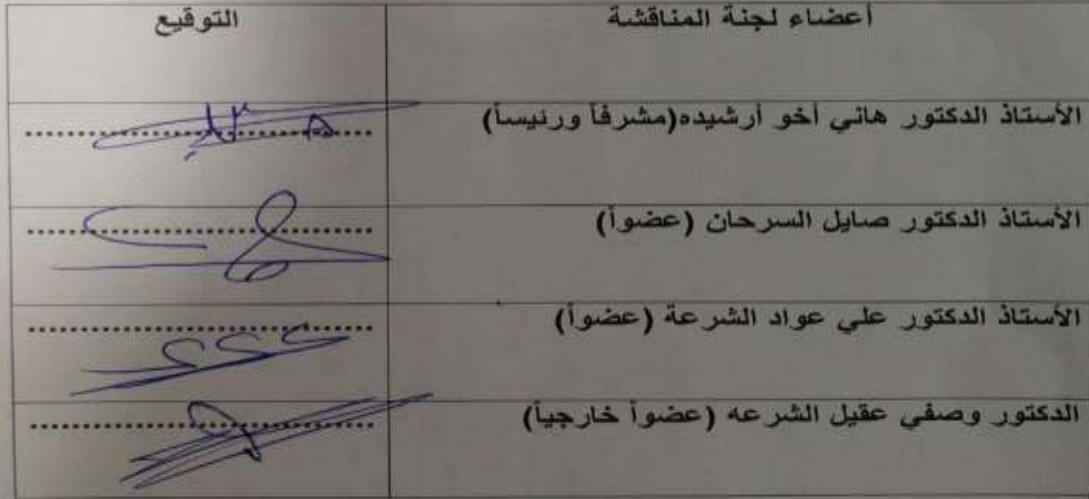 أعضاء لجنة المناقشة التوقيع
الأستاذ الدكتور هاني أخو أرشيده(مشرفاً ورئيساً) ..............................
الأستاذ الدكتور صايل السرحان (عضواً) ..............................
الأستاذ الدكتور علي عواد الشرعة (عضواً) ..............................
الدكتور وصفي عقيل الشرعه (عضواً خارجياً) ..............................